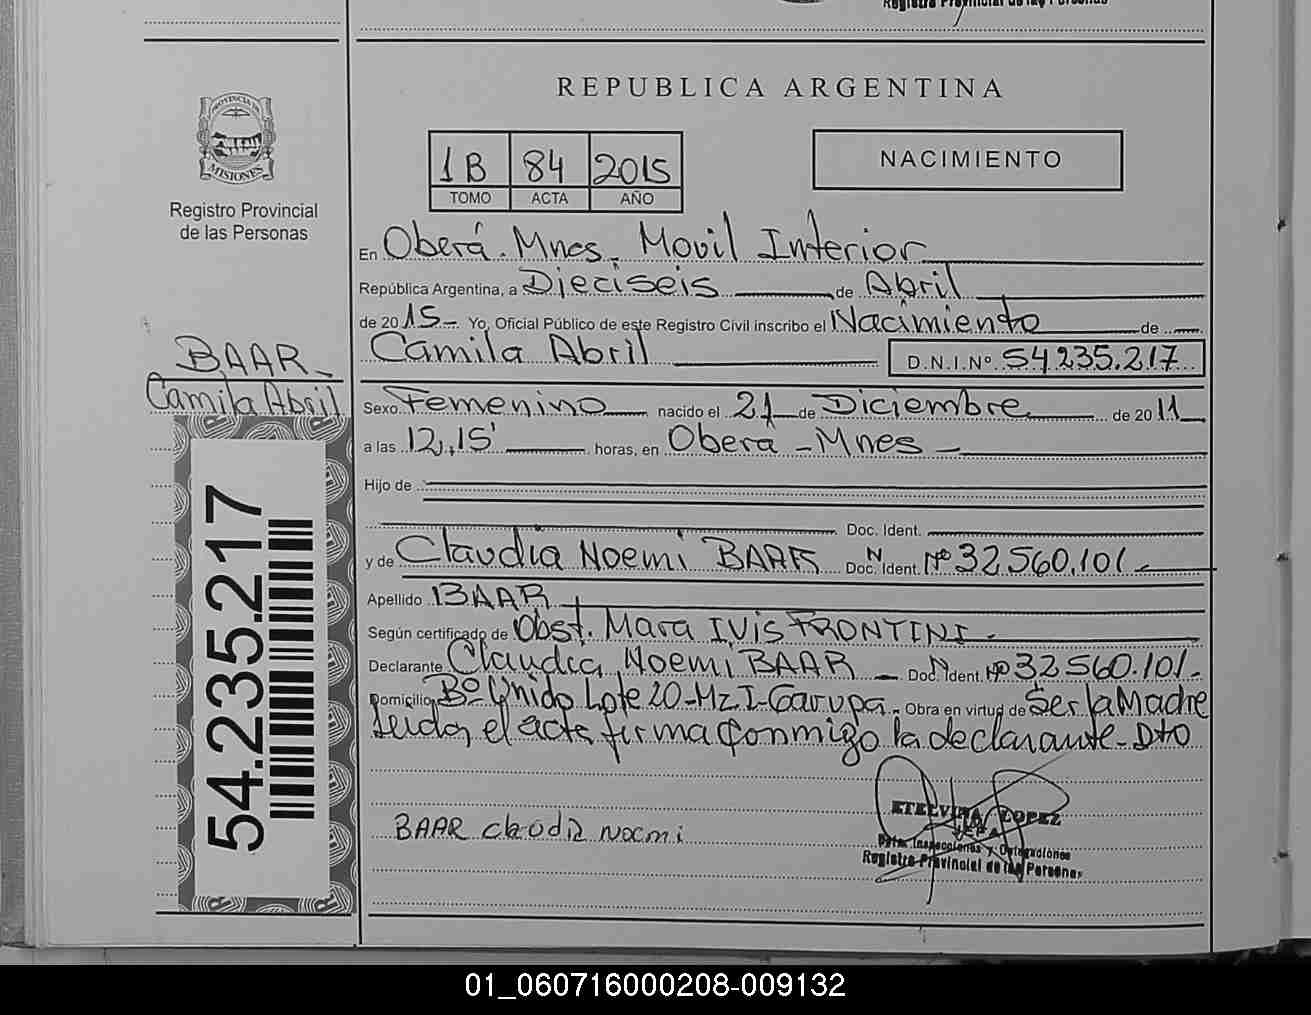 Registro Provincial de las Personas
REPUBLICA ARGENTINA
PROVINCIA DE
MISIONES
Registro Provincial
de las Personas
1B 84 2015
TOMO ACTA AÑO
NACIMIENTO
En Oberá. Mnes. Movil Interior
República Argentina, a Dieciseis de Abril
de 2015- Yo, Oficial Público de este Registro Civil inscribo el Nacimiento de
Camila Abril D.N.I.Nº 54.235.217
BAAR
Camila Abril
Sexo Femenino nacido el 21 de Diciembre de 2011
a las 12,15' horas, en Obera - Mnes -
Hijo de
Doc. Ident.
y de Claudia Noemi BAAR Doc. Ident. N Nº 32560.101.-
Apellido BAAR
Según certificado de Obst. Mara IVis FRONTINI.
Declarante Claudia Noemi BAAR - Doc. Ident. N Nº 32560.101.-
Domicilio Bº Unido Lote 20-Mz I-Garupa. Obra en virtud de Ser la Madre
Leida el acta firma conmigo la declarante-Dto
BAAR Claudia Noemi
ETELVINA LOPEZ
JEFA
Dpto. Inspecciones y Delegaciones
Registro Provincial de las Personas
54.235.217
01_060716000208-009132